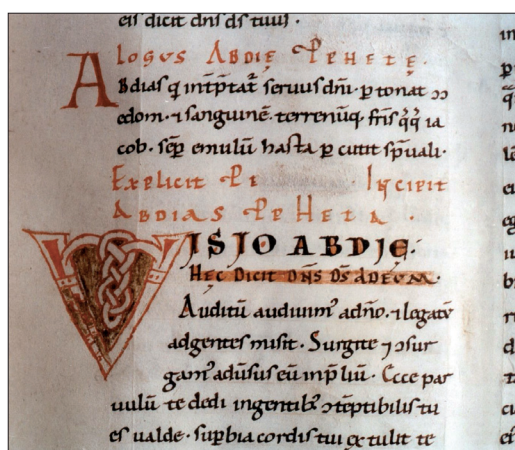 eis dicit dn̄s ds̄ tuus ·
alogus Abdię Pehetę ·
Abdias q̄ int̄ptat᷑ seruus dn̄i · p̱ tonat ɔ
edom · ⁊ sanguinē · terrenūq; fr̄is q̄q̄ ia
cob · sēp̱ emulū hasta ꝑ cutit sp̄uali ·
Explicit Incipit
Abdias Peheta ·
VISIO ABDIĘ ·
Hęc Dicit DN̄S DS̄ ADEDOM ·
Auditū audiuim᷒ adn̄o · ⁊ legatū
adgentes misit · Surgite ⁊ ɔsur
gam᷒ adūsus eū inp̄liū · Ecce par
uulū te dedi ingentib᷒ ɔtēptibilis tu
es ualde · sup̱bia cordis tui ex tulit te